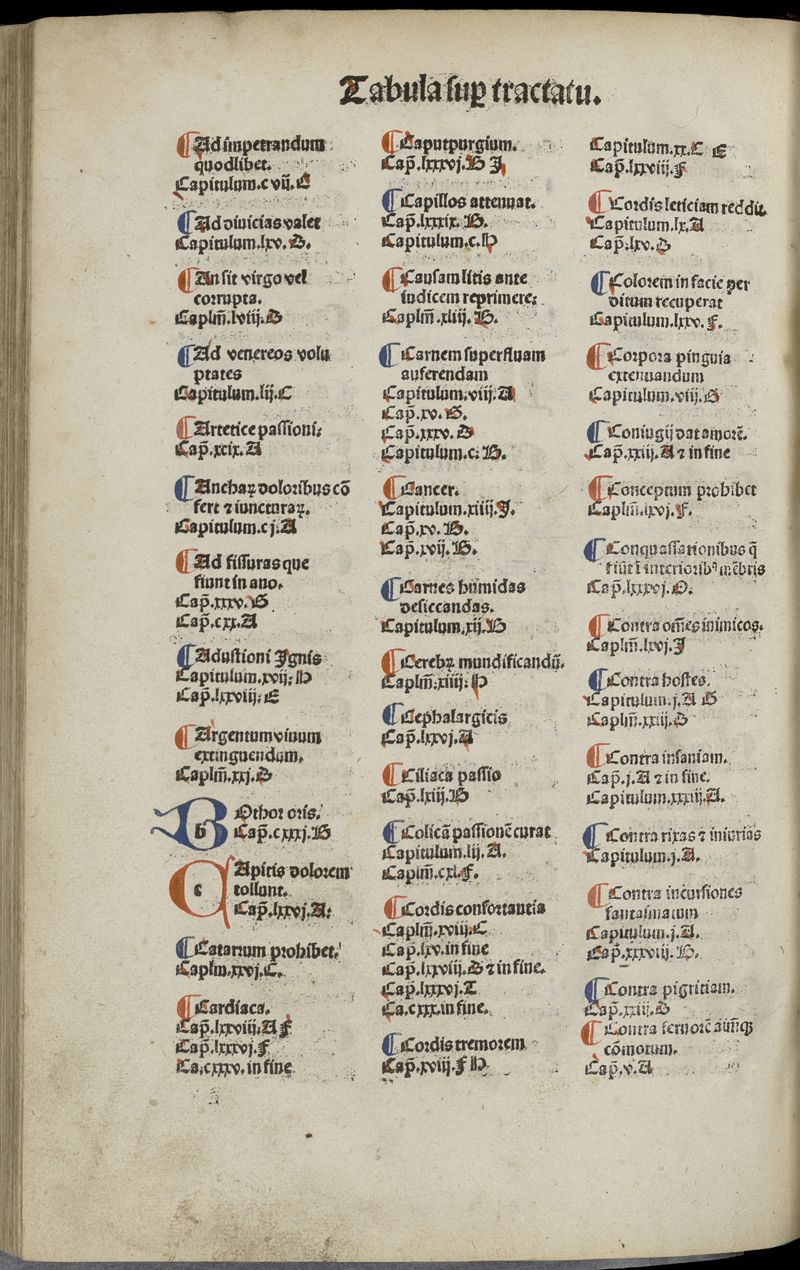 Tabula sup̱ tractatu.
Ad impetrandum
quodlibet.
Capitulum.cvij.C
Ad diuicias valet
Capitulum.lxv.B.
An sit virgo vel
corrupta.
Caplm̄.lviij.B
Ad venereos volu
ptates
Capitulum.lij.C
Artetice passioni:
Cap̄.xcix.A
Anchaꝝ doloribus cō
fert ⁊ iuncturaꝝ.
Capitulum.cj.A
Ad fissuras que
fiunt in ano.
Cap̄.xxxv.
Cap̄.cxx.A
Adustioni Ignis
Capitulum.xvij:
Cap̄.lxxviij:E
Argentum viuum
extinguendum.
Caplm̄.xxj.
b Othor oris.
Cap̄.cxxxj.
c Apitis dolorem
tollunt.
Cap̄.lxxvj.A:
Catarrum prohibet.
Caplm.xxvj.C.
Cardiaca.
Cap̄.lxxviij.A F
Cap̄.lxxxvj.F
Ca.cxxxv.in fine
Caputpurgium.
Cap̄.lxxxvj.H I
Capillos attenuat.
Cap̄.lxxxix.
Capitulum.c.
Causam litis ante
iudicem reprimere:
Caplm̄.xliij.
Carnem superfluam
auferendam
Capitulum.viij.A
Cap̄.xv.
Cap̄.xxxv.
Capitulum.c.
Cancer.
Capitulum.xiiij.I.
Cap̄.xv.
Cap̄.xvij.
Carnes humidas
desiccandas.
Capitulum.xij.
Cerebꝝ mundificandū.
Caplm̄.xiiij:
Cephalargicis
Cap̄.lxxvj.A
Ciliaca passio
Cap̄.lxiij.
Colicā passionē curat
Capitulum.lij.A.
Caplm̄.cxl.F.
Cordis confortantia
Caplm̄.xviij.C
Cap̄.lxv.in fine
Cap̄.lxxviij. ⁊ in fine.
Cap̄.lxxxvj.
Ca.cxxx.in fine.
Cordis tremorem
Cap̄.xviij.F
Capitulum.xx.C E
Cap̄.lxxviij.F
Cordis leticiam reddit.
Capitulum.lx.A
Cap̄.lxv.
Colorem in facie per
ditum recuperat
Capitulum.lxxv.F.
Corpora pinguia
extenuandum
Capitulum.viij.
Coniugij dat amorē.
Cap̄.xxiij.A ⁊ in fine
Conceptum prohibet
Caplm̄.lxvj.F.
Conquassationibus q̄
fiūt ī interioribꝰ mēbris
Cap̄.lxxxvj.
Contra om̄es inimicos.
Caplm̄.lxvj.I
Contra hostes.
Capitulum.j.A
Caplm̄.xxiij.
Contra insaniam.
Cap̄.j.A ⁊ in fine.
Capitulum.xxxiij.A.
Contra rixas ⁊ iniurias
Capitulum.j.A.
Contra incursiones
fantasmatum
Capitulum.j.A.
Cap̄.xxxviij.
Contra pigritiam.
Cap̄.xxiij.
Contra feruorē
cōmotum.
Cap̄.v.A